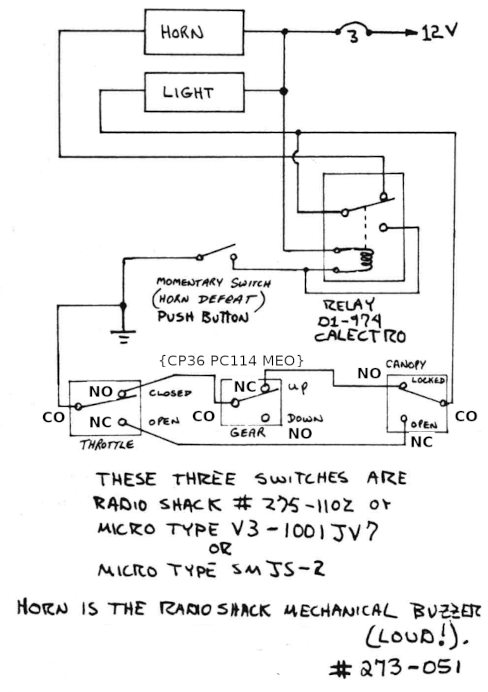 HORN
3
12V
LIGHT
MOMENTARY SWITCH
(HORN DEFEAT)
PUSH BUTTON
RELAY
D1-974
CALECTRO
{CP36 PC114 MEO}
CANOPY
NO
CLOSED
NC
UP
NO
LOCKED
CO
NC
OPEN
CO
DOWN
OPEN
CO
THROTTLE
GEAR
NO
NC
THESE THREE SWITCHES ARE
RADIO SHACK # 275-1102 or
MICRO TYPE V3-1001 JV7
OR
MICRO TYPE SMJS-2
HORN IS THE RADIO SHACK MECHANICAL BUZZER
(LOUD!).
# 273-051